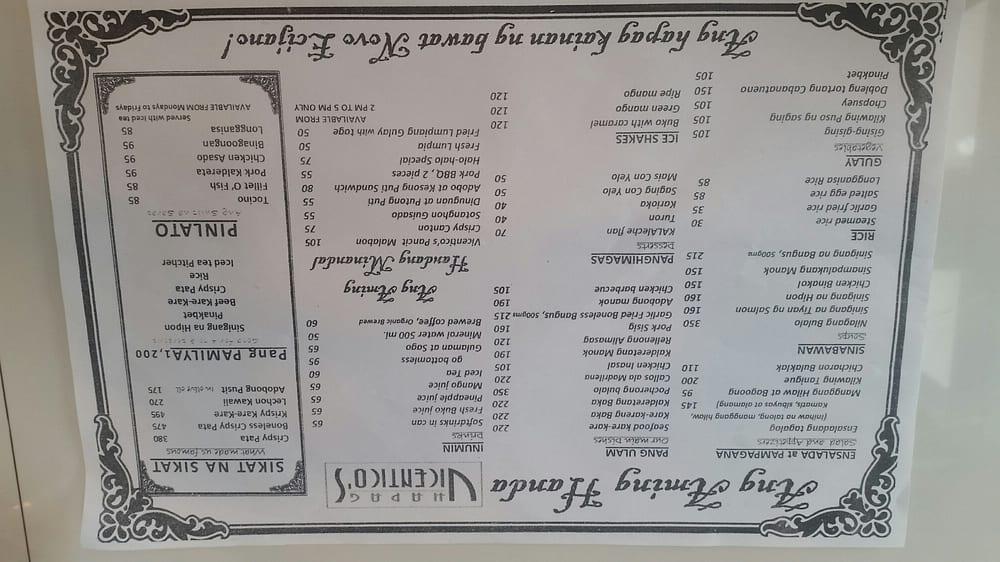 Ang Aming Handa
HAPAG VICENTICO'S
ENSALADA at PAMPAGANA
Salad and Appetizers
Ensaladang Tagalog
(Inihaw na talong, manggang hilaw,
kamatis at sibuyas, at alamang) 145
Manggang Hilaw at Bagoong 95
Kilawing Tanigue 200
Chicharon Bulaklak 110
SINABAWAN
Soups
Nilagang Bulalo 350
Sinigang na Tiyan ng Salmon 160
Sinigang na Hipon 160
Chicken Binakol 150
Sinampalukang Manok 150
Sinigang na Bangus, 500gms 215
RICE
Steamed rice 30
Garlic fried rice 35
Salted egg rice 85
Longganisa Rice 85
GULAY
Vegetables
Gising-gising 105
Kilawing Puso ng saging 105
Chopsuey 105
Dobleng tortang Cabanatueno 150
Pinakbet 105
PANG ULAM
Our main Dishes
Seafood kare-kare 220
Kare-kareng Baka 220
Kalderetang Baka 220
Pocherong bulalo 350
Callos ala Madrilena 220
Chicken Inasal 105
Kalderetang Manok 190
Rellenong Alimasag 120
Pork Sisig 160
Garlic Fried Boneless Bangus 500gms 215
Adobong manok 190
Chicken barbecue 105
PANGHIMAGAS
Desserts
KALAleche flan 70
Turon 40
Karioka 40
Saging Con Yelo 50
Mais Con Yelo 50
ICE SHAKES
Buko with caramel 120
Green mango 120
Ripe mango 120
INUMIN
Drinks
Softdrinks in can 65
Fresh Buko juice 65
Pineapple juice 65
Mango juice 65
Iced Tea 60
go bottomless 95
Gulaman at Sago 65
Mineral water 500 ml. 50
Brewed coffee, Organic Brewed 60
Ang Aming
Handang Minandal
Vicentico's Pancit Malabon 105
Crispy Canton 75
Sotanghon Guisado 55
Dinuguan at Putong Puti 55
Adobo at Kesong Puti Sandwich 80
Pork BBQ, 2 pieces 55
Halo-halo Special 75
Fresh Lumpia 50
Fried Lumpiang Gulay with toge 50
AVAILABLE FROM
2 PM TO 5 PM ONLY
SIKAT NA SIKAT
What made us famous
Crispy Pata 380
Boneless Crispy Pata 475
Krispy Kare-Kare 495
Lechon Kawali 270
Adobong Pusit in olive oil 175
Pang PAMILYA1,200
Good for 4 to 5 persons
Sinigang na Hipon
Pinakbet
Beef Kare-Kare
Crispy Pata
Rice
Iced tea Pitcher
PINLATO
Ang Sulit na Sarap
Tocino 85
Fillet O' Fish 85
Pork Kaldereta 95
Chicken Asado 95
Binagoongan 95
Longganisa 85
Served with Iced tea
AVAILABLE FROM Mondays to Fridays
Ang hapag kainan ng bawat Novo Ecijano!